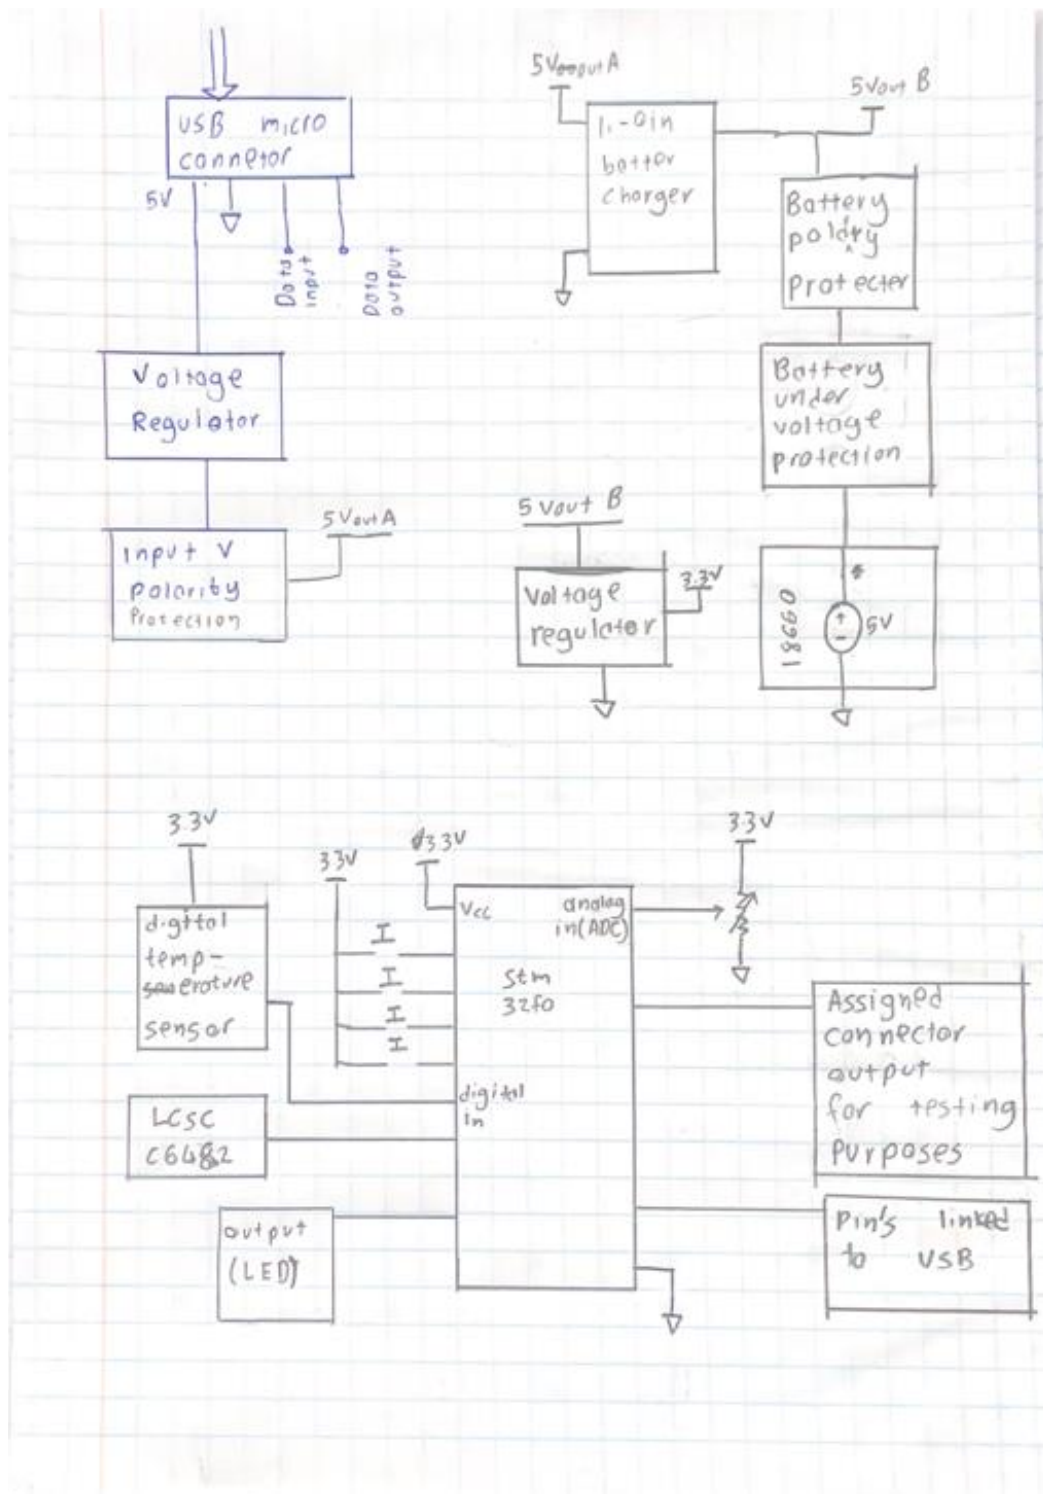 USB micro
connetor
5V
Data
input
Data
output
Voltage
Regulator
Input V
polarity
Protection
5VoutA
5V out A
batter
charger
5Vout B
Battery
Protecter
Battery
under
voltage
protection
18660
+
-
5V
5 Vout B
Voltage
regulator
3.3V
3.3V
digital
temp-
erature
sensor
LCSC
output
(LED)
33V
33V
Vcc
analog
in(ADC)
Stm
32f0
digital
in
3.3V
Assigned
connector
output
for testing
purposes
Pin's linked
to USB